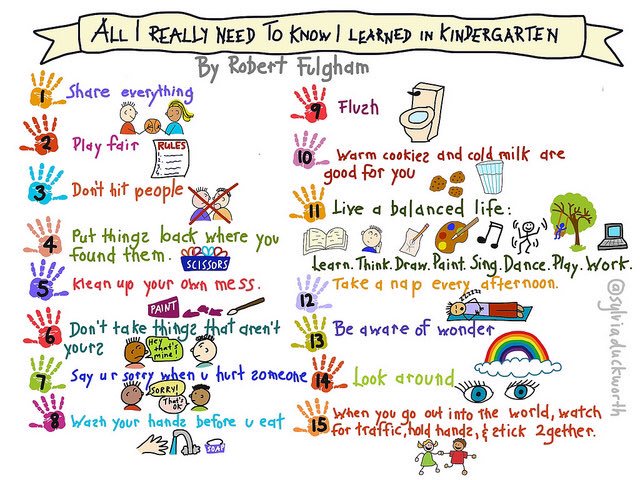 ALL I REALLY NEED TO KNOW I LEARNED IN KINDERGARTEN
By Robert Fulgham
1 Share everything
2 Play fair
RULES
3 Don't hit people
4 Put things back where you
found them.
SCISSORS
5 Klean up your own mess.
PAINT
6 Don't take things that aren't
yours
Hey
that's
mine!
7 Say ur sorry when u hurt someone
SORRY!
That's
OK
8 Wash your hands before u eat
SOAP
9 Flush
10 Warm cookies and cold milk are
good for you
11 Live a balanced life:
Learn. Think. Draw. Paint. Sing. Dance. Play. Work.
12 Take a nap every afternoon.
13 Be aware of wonder
14 Look around
15 When you go out into the world, watch
for traffic, hold hands, & stick 2gether.
@sylviaduckworth